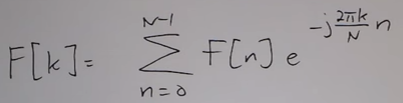 F[k] = \sum_{n=0}^{N-1} F[n] e^{-j\frac{2πk}{N}n}